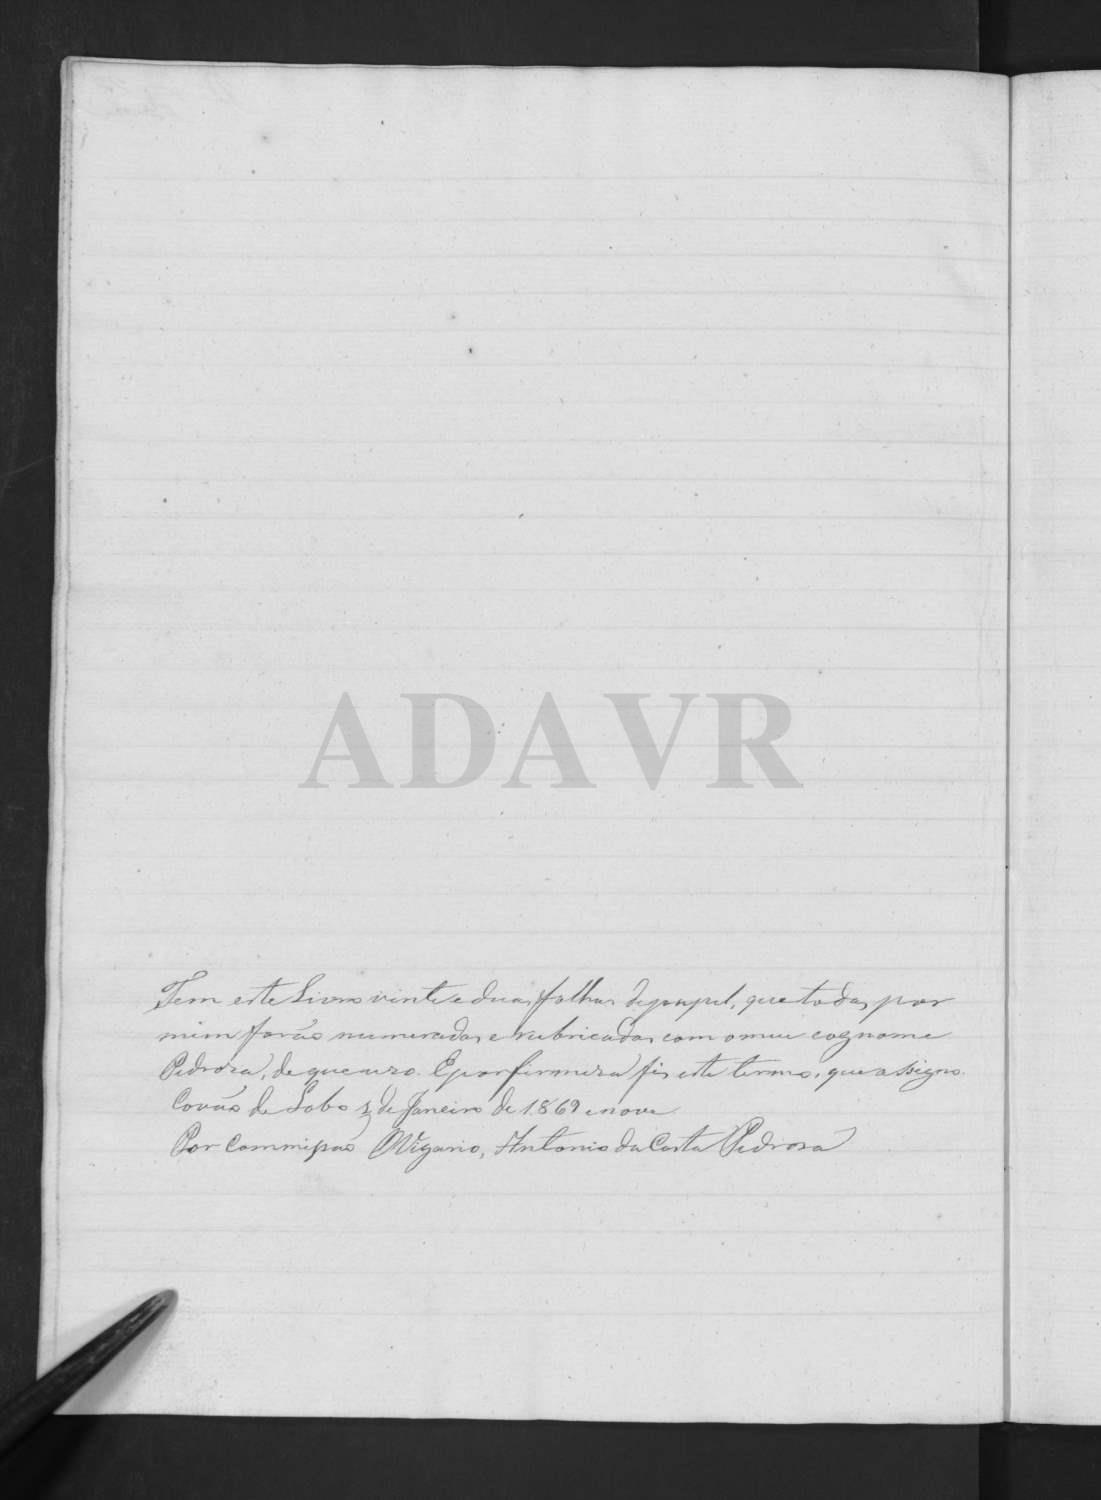 ADAVR
Tem este Livro vinte e duas folhas de papel, que todas por
mim forão numeradas e rubricadas com o meu cognome
Pedroza, de que uzo. E por firmeza fis este termo, que assigno.
Covão de Lobo de Janeiro de 1869 e nove
Por Commissão O Vigario, Antonio da Costa Pedroza